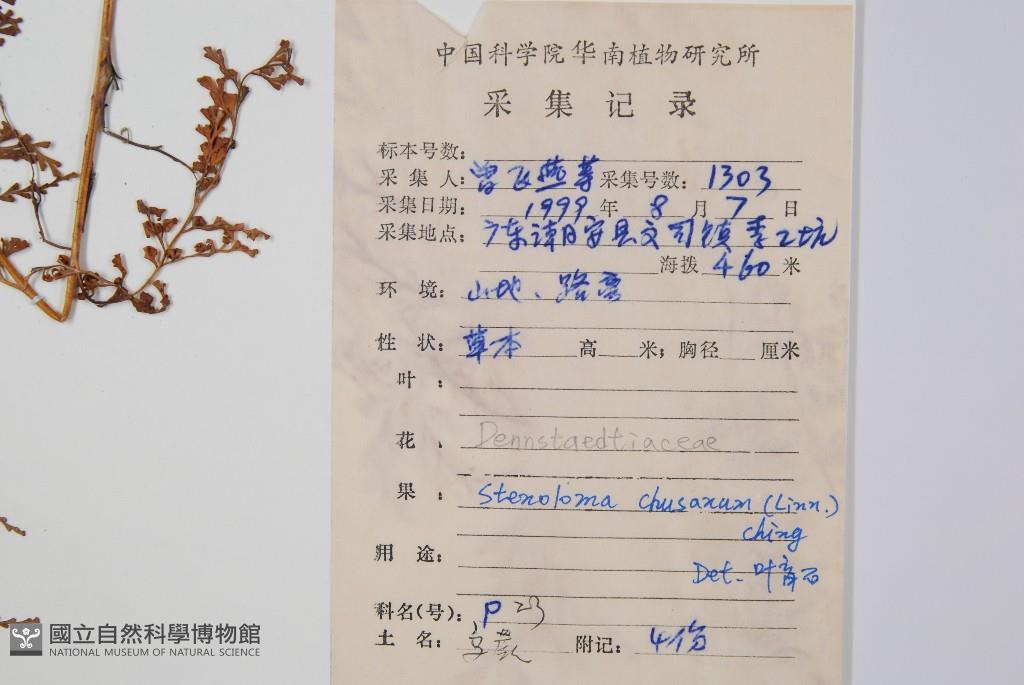 中国科学院华南植物研究所
采集记录
标本号数:
采集人:曾飞燕等 采集号数:1303
采集日期:1999年8月7日
采集地点:广东潮安县文司镇李工坑
海拨460米
环境:山地、路旁
性状:草本 高 米;胸径 厘米
叶:
花: Dennstaedtiaceae
果: Stenoloma chusanum (Linn.)
Ching
用途:
Det. 叶育石
科名(号):P23
土名: 附记:4份
國立自然科學博物館
NATIONAL MUSEUM OF NATURAL SCIENCE